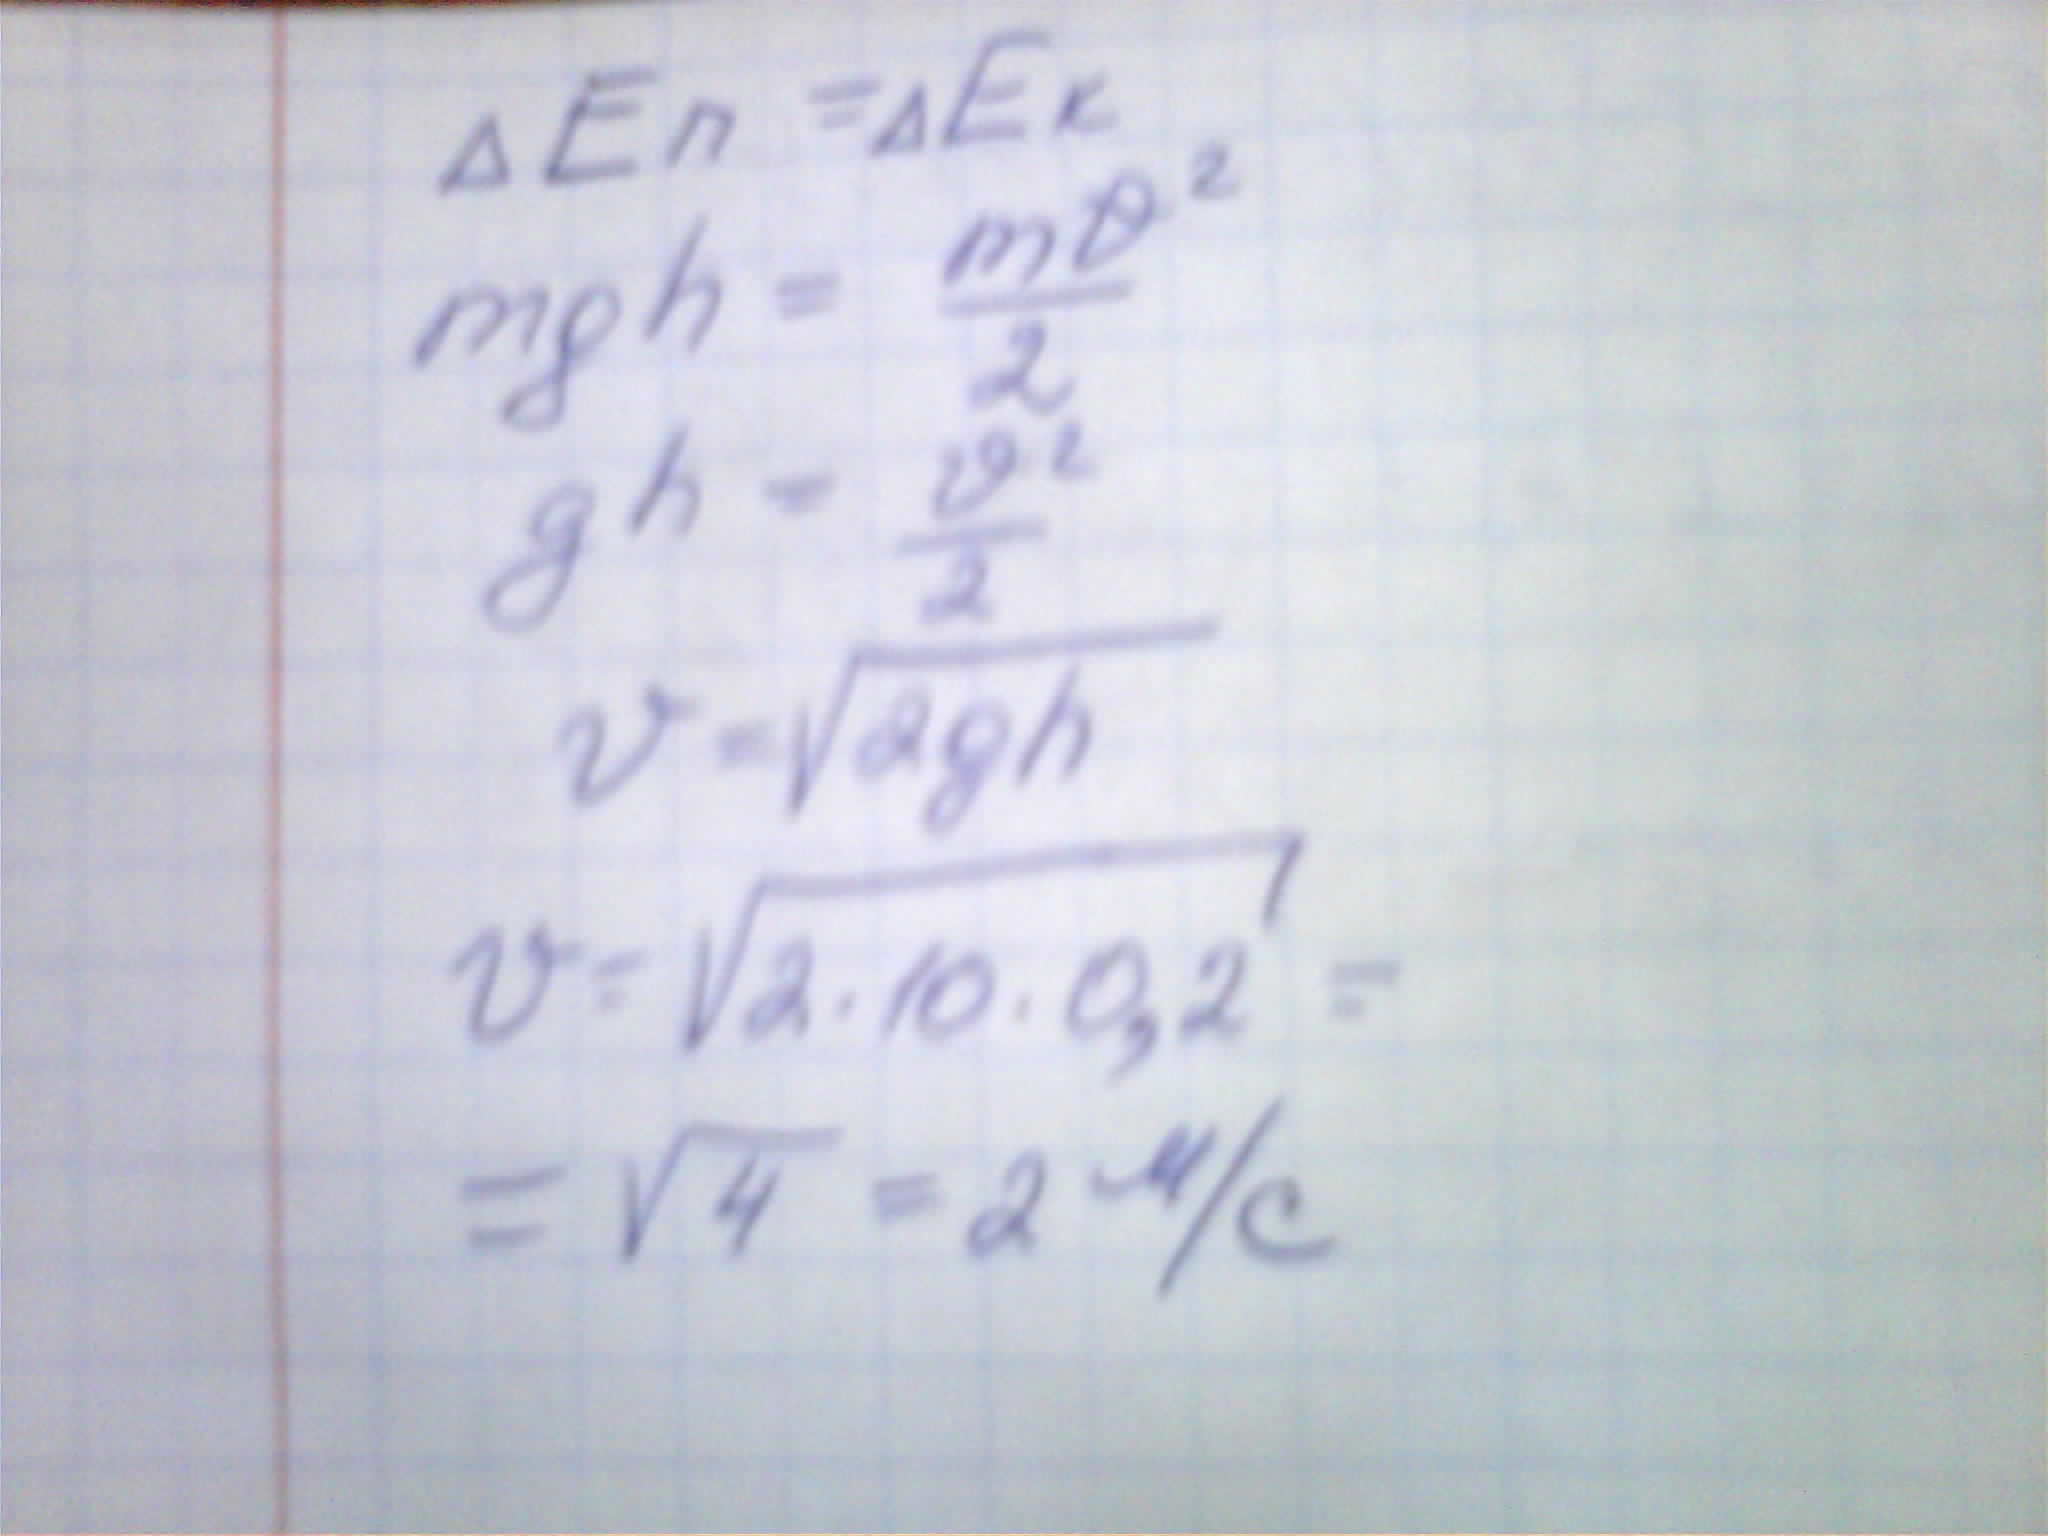 ΔEп = ΔEк
mgh = mv²/2
gh = v²/2
v = √2gh
v = √2·10·0,2 =
= √4 = 2 м/с